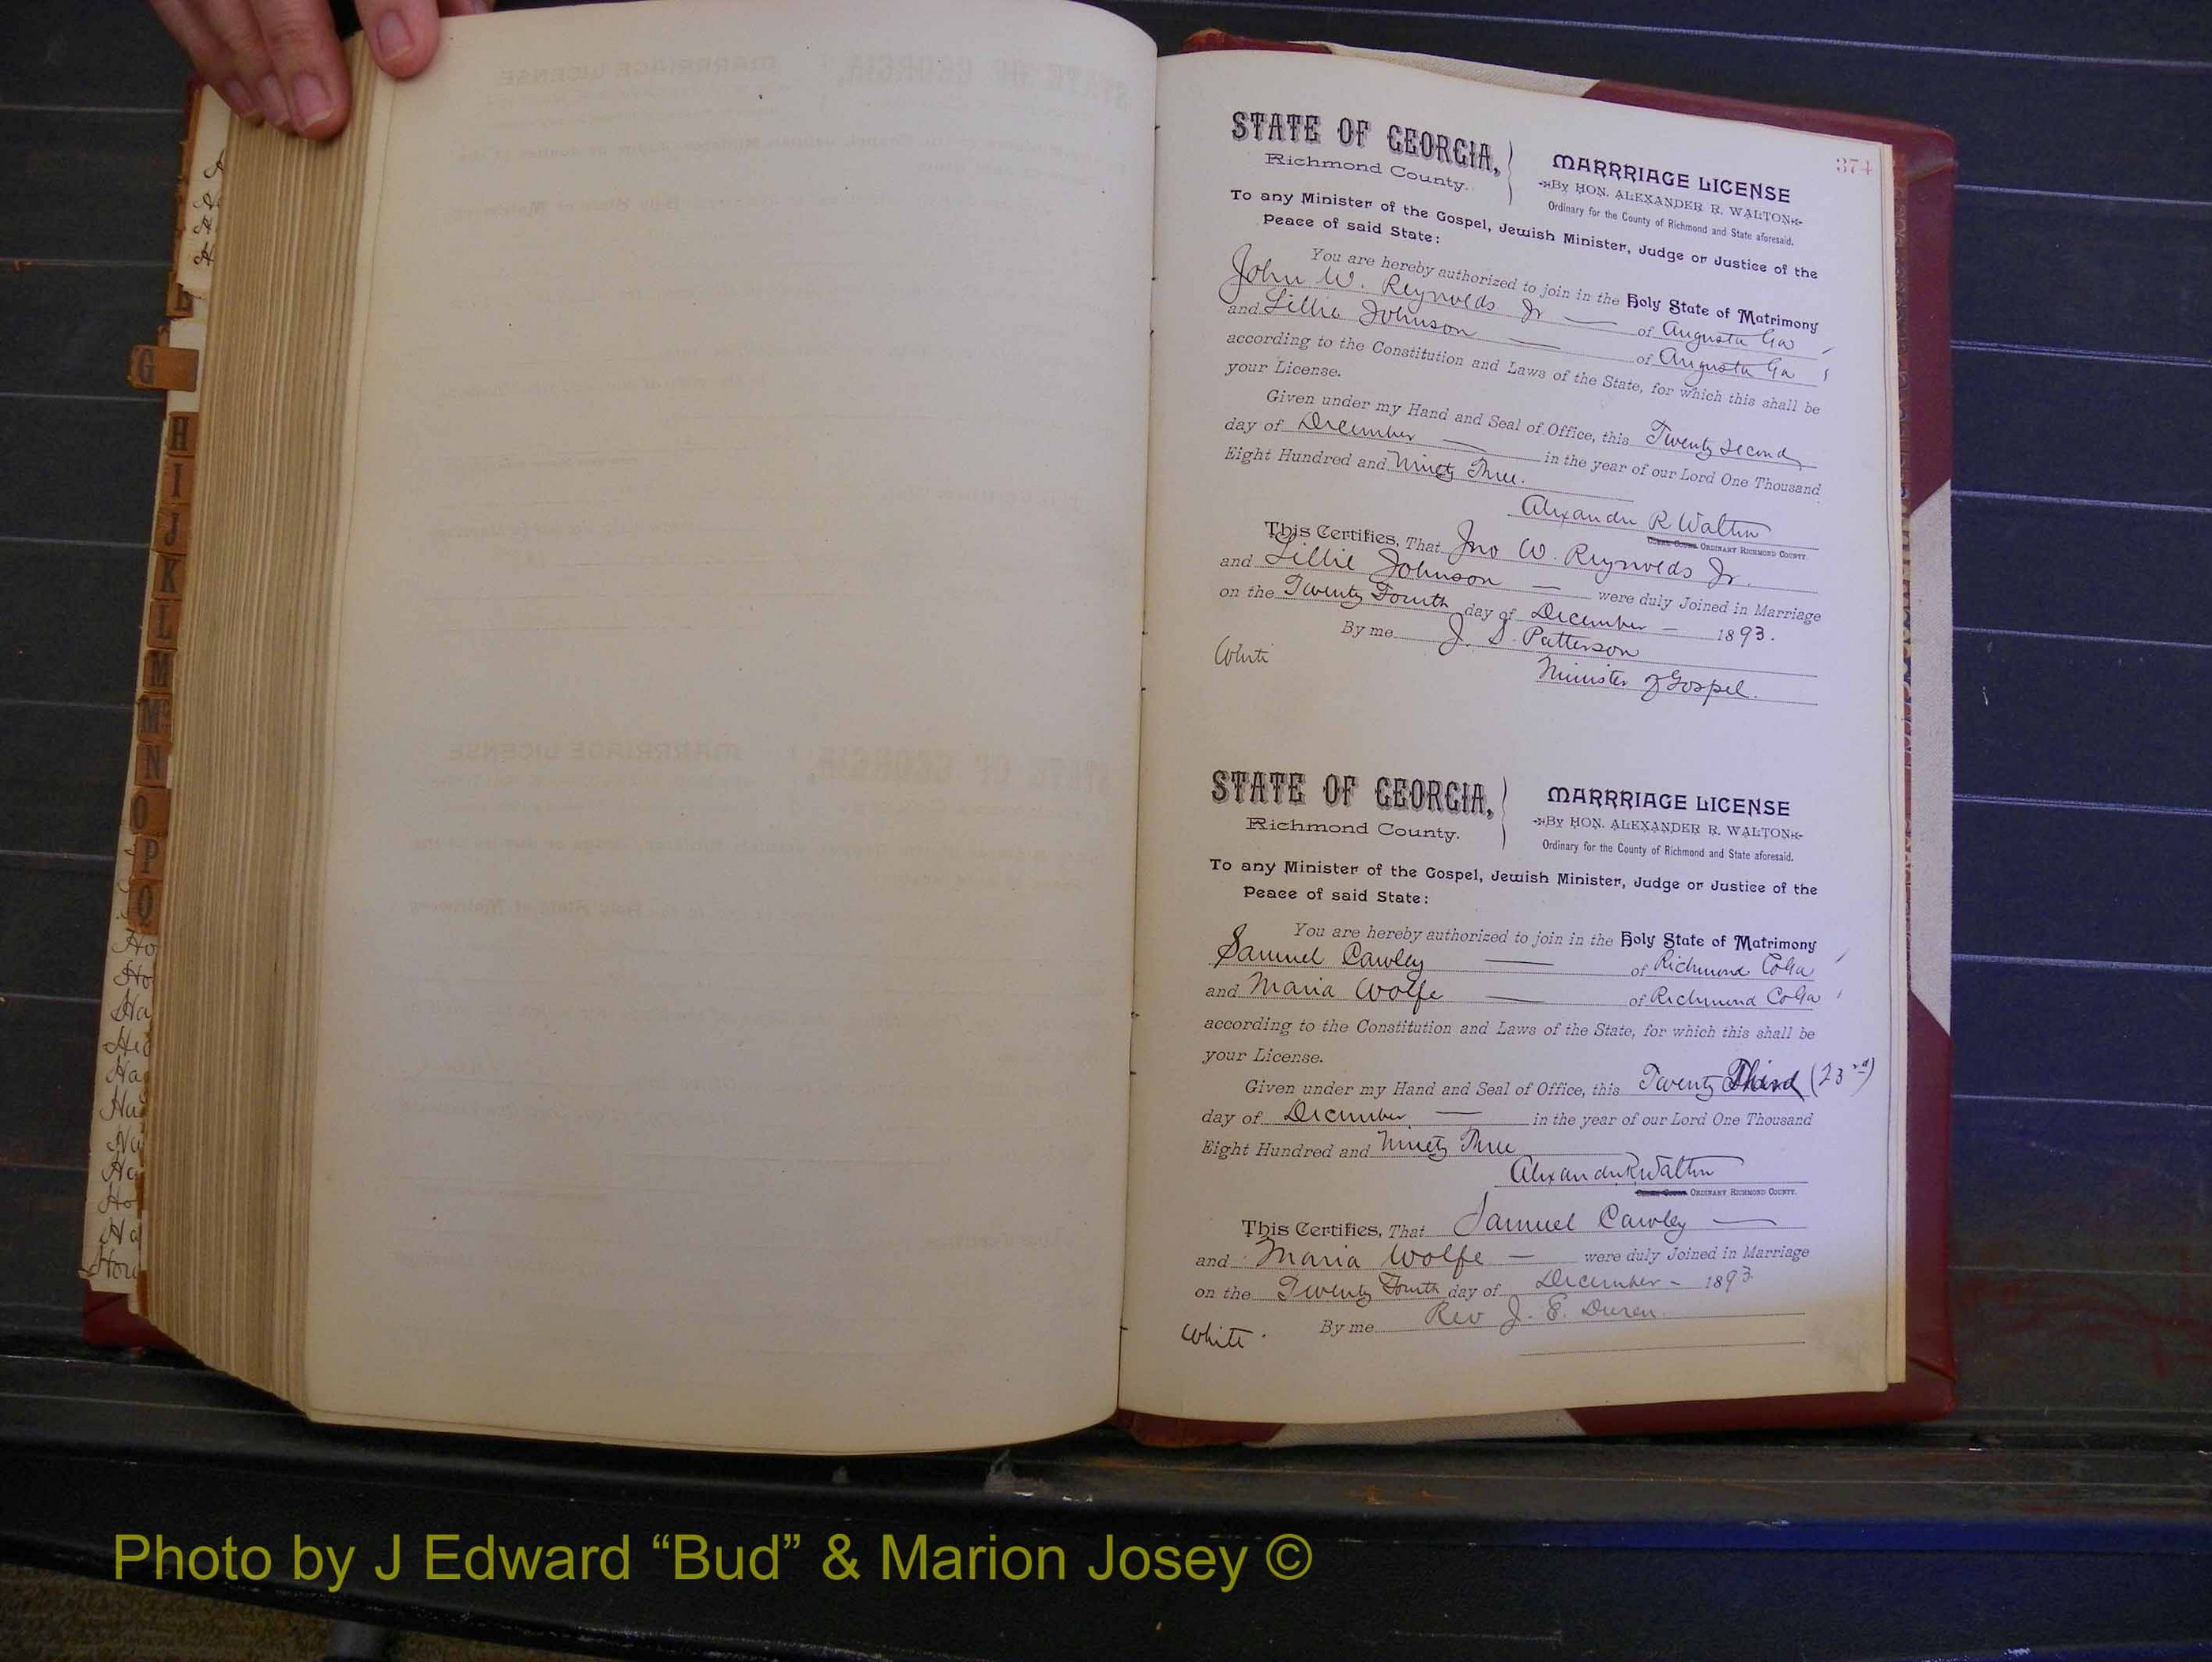 374
STATE OF GEORGIA,
Richmond County.
MARRRIAGE LICENSE
By HON. ALEXANDER R. WALTON
Ordinary for the County of Richmond and State aforesaid.
To any Minister of the Gospel, Jewish Minister, Judge or Justice of the
Peace of said State:
You are hereby authorized to join in the Holy State of Matrimony
John W. Reynolds Jr — of Augusta Ga
and Lillie Johnson — of Augusta Ga
according to the Constitution and Laws of the State, for which this shall be
your License.
Given under my Hand and Seal of Office, this Twenty second
day of December — in the year of our Lord One Thousand
Eight Hundred and Ninety Three.
Alexander R Walton
ORDINARY RICHMOND COUNTY.
This Certifies, That Jno W. Reynolds Jr.
and Lillie Johnson — were duly Joined in Marriage
on the Twenty Fourth day of December — 1893.
By me J. S. Patterson
White
Minister of Gospel.
STATE OF GEORGIA,
Richmond County.
MARRRIAGE LICENSE
By HON. ALEXANDER R. WALTON
Ordinary for the County of Richmond and State aforesaid.
To any Minister of the Gospel, Jewish Minister, Judge or Justice of the
Peace of said State:
You are hereby authorized to join in the Holy State of Matrimony
Samuel Cawley — of Richmond Co Ga
and Maria Wolfe — of Richmond Co Ga
according to the Constitution and Laws of the State, for which this shall be
your License.
Given under my Hand and Seal of Office, this Twenty Third (23rd)
day of December — in the year of our Lord One Thousand
Eight Hundred and Ninety Three
Alexander R Walton
ORDINARY RICHMOND COUNTY.
This Certifies, That Samuel Cawley —
and Maria Wolfe — were duly Joined in Marriage
on the Twenty Fourth day of December - 1893
By me Rev J. E. Duren.
White.
G
H
I
J
K
L
M
Mc
N
O
P
Q
Ho
Ho
Ha
Ha
Ho
Ha
Photo by J Edward “Bud” & Marion Josey ©